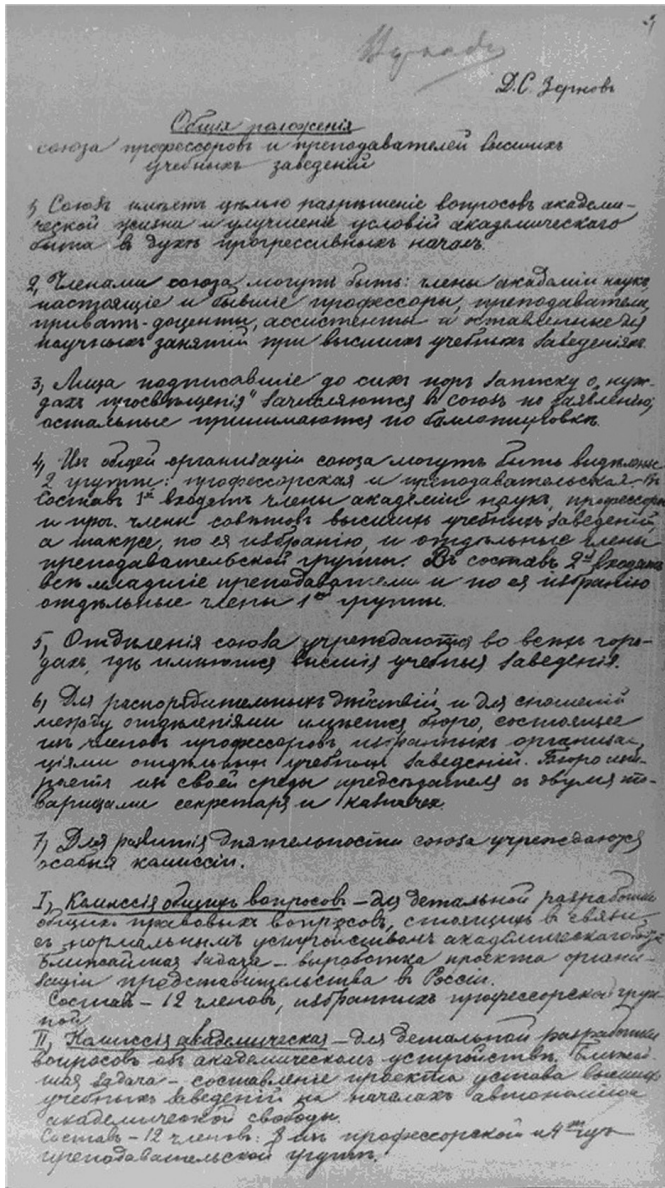 Д. С. Зерновъ
Общія положенія
союза профессоровъ и преподавателей высшихъ
учебныхъ заведеній
1, Союзъ имѣетъ цѣлью разрѣшеніе вопросовъ академи-
ческой жизни и улучшеніе условій академическаго
быта въ духѣ прогрессивныхъ началъ.
2, Членами союза могутъ быть: члены академіи наукъ,
настоящіе и бывшіе профессоры, преподаватели,
приватъ-доценты, ассистенты и оставленные для
научныхъ занятій при высшихъ учебныхъ заведеніяхъ.
3, Лица подписавшіе до сихъ поръ записку о „нуж-
дахъ просвѣщенія" зачисляются въ союзъ по заявленію,
остальные принимаются по баллотировкѣ.
4, Изъ общей организаціи союза могутъ быть выдѣлены
2 группы: профессорская и преподавательская. Въ
составъ 1ой входятъ члены академіи наукъ, профессора
и проч. члены совѣтовъ высшихъ учебныхъ заведеній,
а также, по ея избранію, и отдѣльные члены
преподавательской группы. Въ составъ 2й входятъ
всѣ младшіе преподаватели и по ея избранію
отдѣльные члены 1ой группы.
5, Отдѣленія союза учреждаются во всѣхъ горо-
дахъ, гдѣ имѣются высшія учебныя заведенія.
6, Для распорядительныхъ дѣйствій и для сношеній
между отдѣленіями имѣется бюро, состоящее
изъ членовъ профессоровъ избранныхъ организа-
ціями отдѣльныхъ учебныхъ заведеній. Бюро изби-
раетъ изъ своей среды предсѣдателя съ двумя то-
варищами секретаря и казначея.
7, Для развитія дѣятельности союза учреждаются
особыя комиссіи.
I, Комиссія общихъ вопросовъ – для детальной разработки
общихъ правовыхъ вопросовъ, стоящихъ въ связи
съ нормальнымъ устройствомъ академическаго быта.
Ближайшая задача – выработка проекта органи-
заціи представительства въ Россіи.
Составъ – 12 членовъ, избранныхъ профессорской груп-
пой.
II, Комиссія академическая – для детальной разработки
вопросовъ объ академическомъ устройствѣ. Ближай-
шая задача – составленіе проекта устава высшихъ
учебныхъ заведеній на началахъ автономіи и
академической свободы.
Составъ – 12 членовъ: 8 изъ профессорской и 4 изъ
преподавательской группъ.